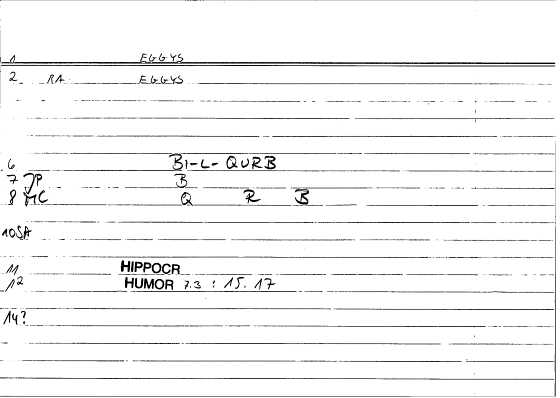 1 EGGYS
2 RA EGGYS
6 BI-L-QURB
7 JP B
8 MC Q R B
10 SA
11 HIPPOCR
12 HUMOR 7.3 : 15.17
14?